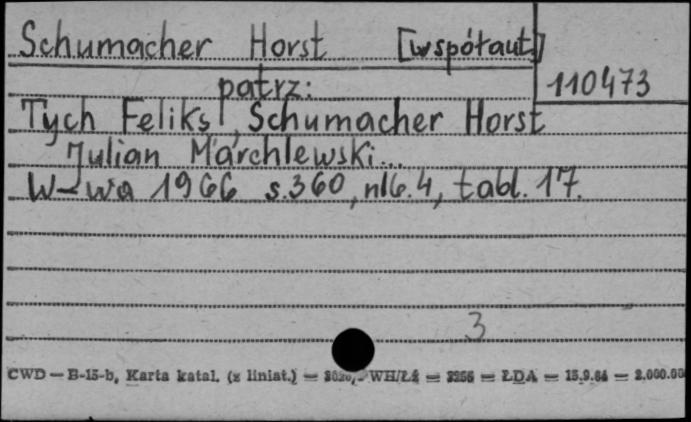 Schumacher Horst [współaut]
110473
patrz:
Tych Feliks, Schumacher Horst
Julian Marchlewski...
W-wa 1966 s.360, nlb.4, tabl.17.
3
CWD — B-15-b, Karta katal. (z liniat.) — WH/Łż — — ŁDA — 15.9.64 — 2.000.00